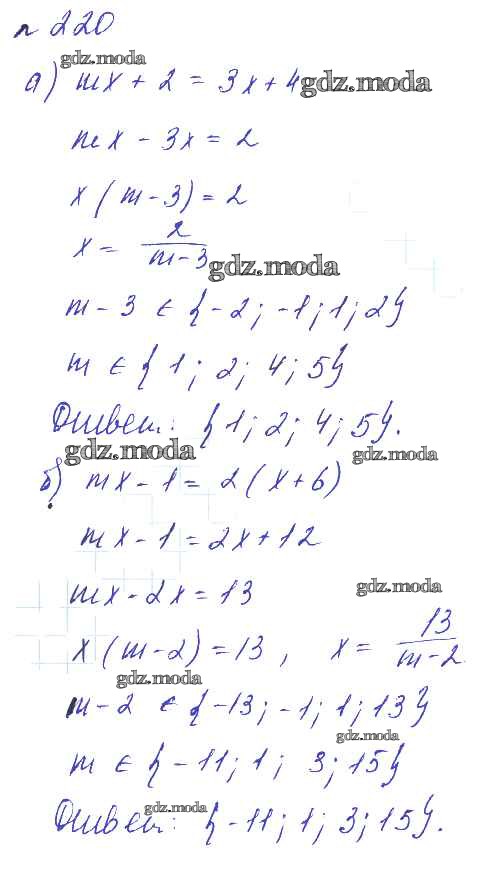 № 220
gdz.moda
а) mx + 2 = 3x + 4 gdz.moda
mx - 3x = 2
x (m - 3) = 2
x = 2/(m - 3)
gdz.moda
m - 3 ∈ {-2; -1; 1; 2}
m ∈ {1; 2; 4; 5}
Ответ: {1; 2; 4; 5}.
gdz.moda gdz.moda
б) mx - 1 = 2 (x + 6)
mx - 1 = 2x + 12
mx - 2x = 13
gdz.moda
x (m - 2) = 13, x = 13/(m - 2)
gdz.moda
m - 2 ∈ {-13; -1; 1; 13}
gdz.moda
m ∈ {-11; 1; 3; 15}
gdz.moda
Ответ: {-11; 1; 3; 15}.